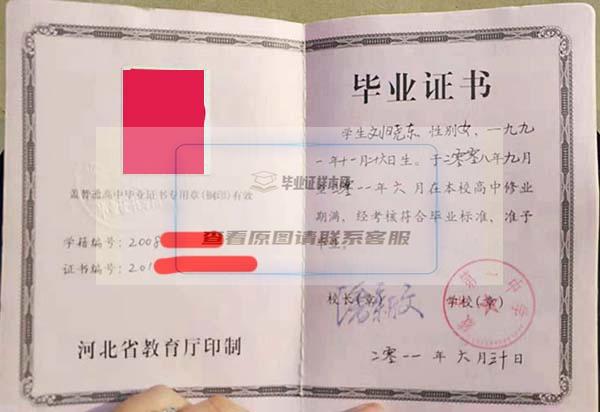 盖普通高中毕业证书专用章(钢印)有效
学籍编号：2008
证书编号：201
河北省教育厅印制
毕业证书
学生刘晓东，性别女，一九九
一年十一月十六日生。于二零零八年九月
至二零一一年六月在本校高中修业
期满，经考核符合毕业标准，准予
毕业。
校长(章)
学校(章)
二零一一年六月三十日
毕业证样本网
查看原图请联系客服